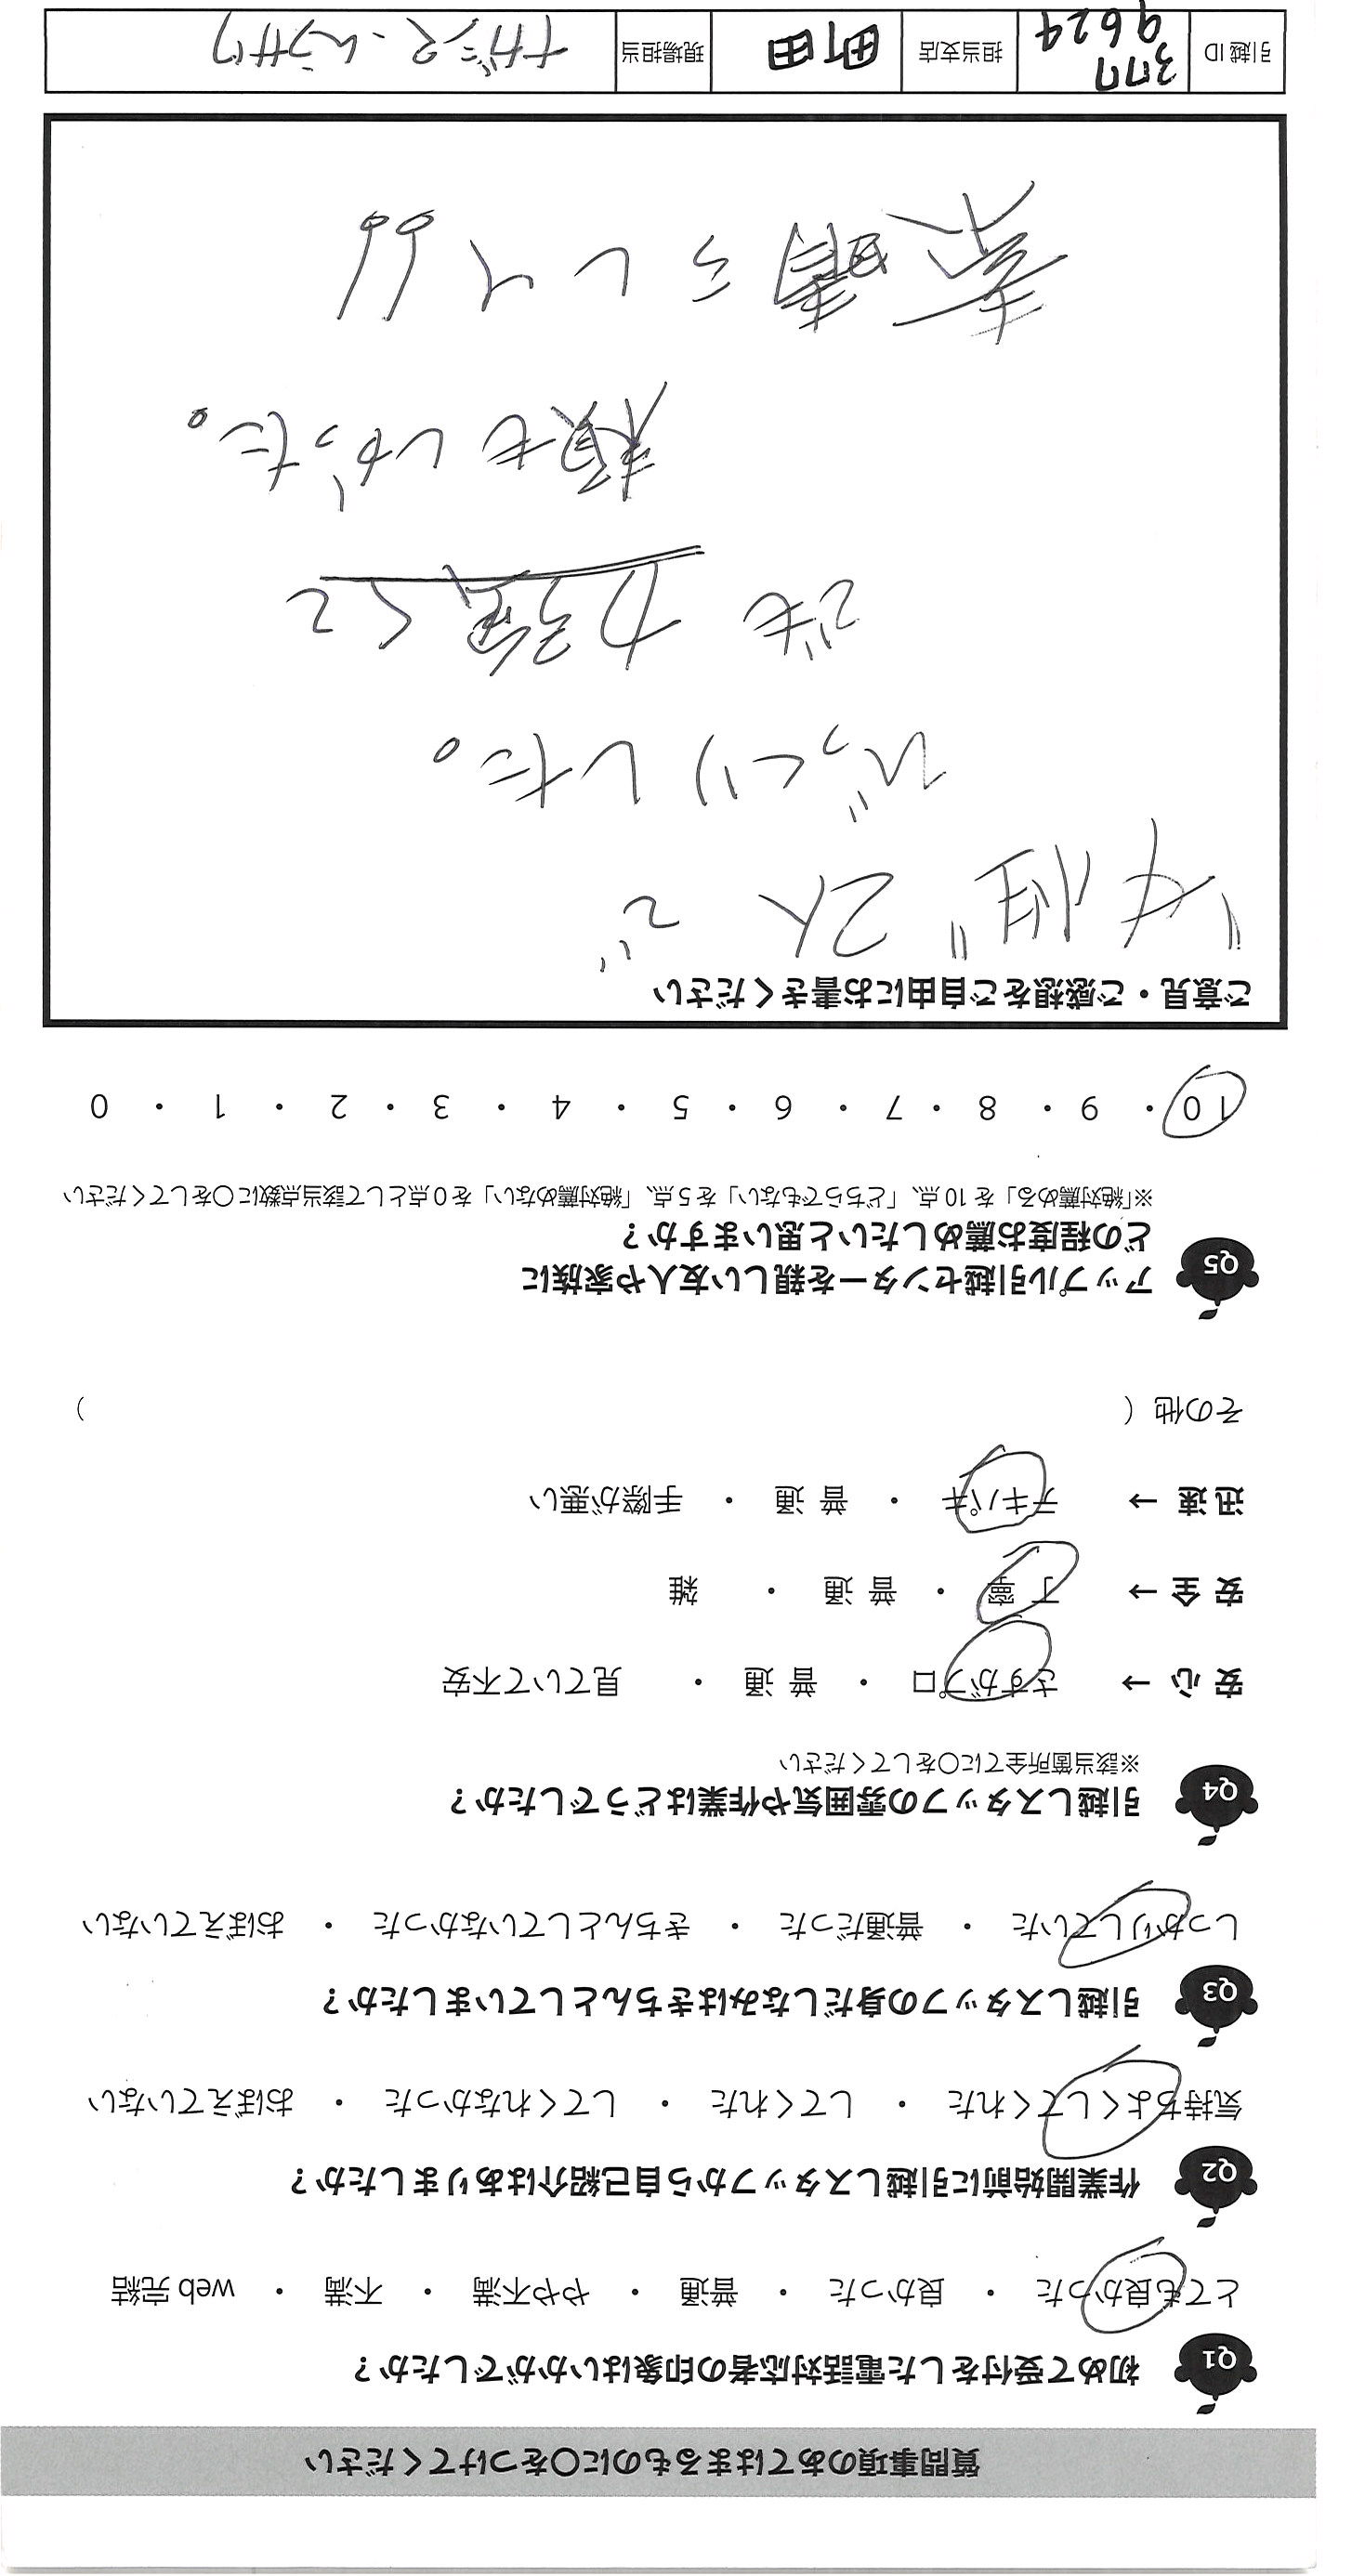 質問事項のあてはまるものに〇をつけてください
Q1 初めて受付をした電話対応者の印象はいかがでしたか?
とても良かった ・ 良かった ・ 普通 ・ やや不満 ・ 不満 ・ web 完結
Q2 作業開始前に引越しスタッフから自己紹介はありましたか?
気持ちよくしてくれた ・ してくれた ・ してくれなかった ・ おぼえていない
Q3 引越しスタッフの身だしなみはきちんとしていましたか?
しっかりしていた ・ 普通だった ・ きちんとしていなかった ・ おぼえていない
Q4 引越しスタッフの雰囲気や作業はどうでしたか?
※該当箇所全てに〇をしてください
安心 → さすがプロ ・ 普通 ・ 見ていて不安
安全 → 丁寧 ・ 普通 ・ 雑
迅速 → テキパキ ・ 普通 ・ 手際が悪い
その他 ( )
Q5 アップル引越センターを親しい友人や家族に
どの程度お薦めしたいと思いますか?
※「絶対薦める」を 10 点、「どちらでもない」を 5 点、「絶対薦めない」を 0 点として該当点数に〇をしてください
10 ・ 9 ・ 8 ・ 7 ・ 6 ・ 5 ・ 4 ・ 3 ・ 2 ・ 1 ・ 0
ご意見・ご感想をご自由にお書きください
"女性" 2人で
びっくりした。
でも 力強くて
頼もしかった。
素晴らしい!!
引越 ID 377 9624 担当支店 町田 現場担当 ナガシマ・